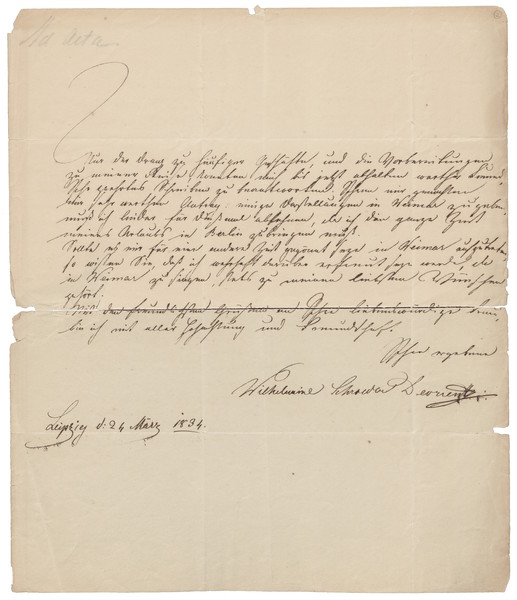 Ad acta
Nur der Drang zu häufiger Geschäfte, und die Vorbereitungen
zu meiner Reise konnten mich bis jetzt abhalten werthester
Ihr geehrtes Schreiben zu beantworten. Ihren mir gemachten
sehr werthen Antrag: einige Vorstellungen in Weimar zu geben,
muß ich leider für dießmal ablehnen, da ich die ganze Zeit
meines Urlaubs in Berlin zubringen muß.
Sollte es mir für eine andere Zeit gegönnt sein in Weimar aufzutreten
so wissen Sie, daß ich wahrhaft darüber erfreut sein werde, da
in Weimar zu singen, stets zu meinen liebsten Wünschen
gehört.
Mit den freundlichsten Grüßen an Ihre liebenswürdige
bin ich mit aller Hochachtung und Freundschaft.
Ihre ergebene
Wilhelmine Schröder Devrient.
Leipzig d: 24 März 1834.